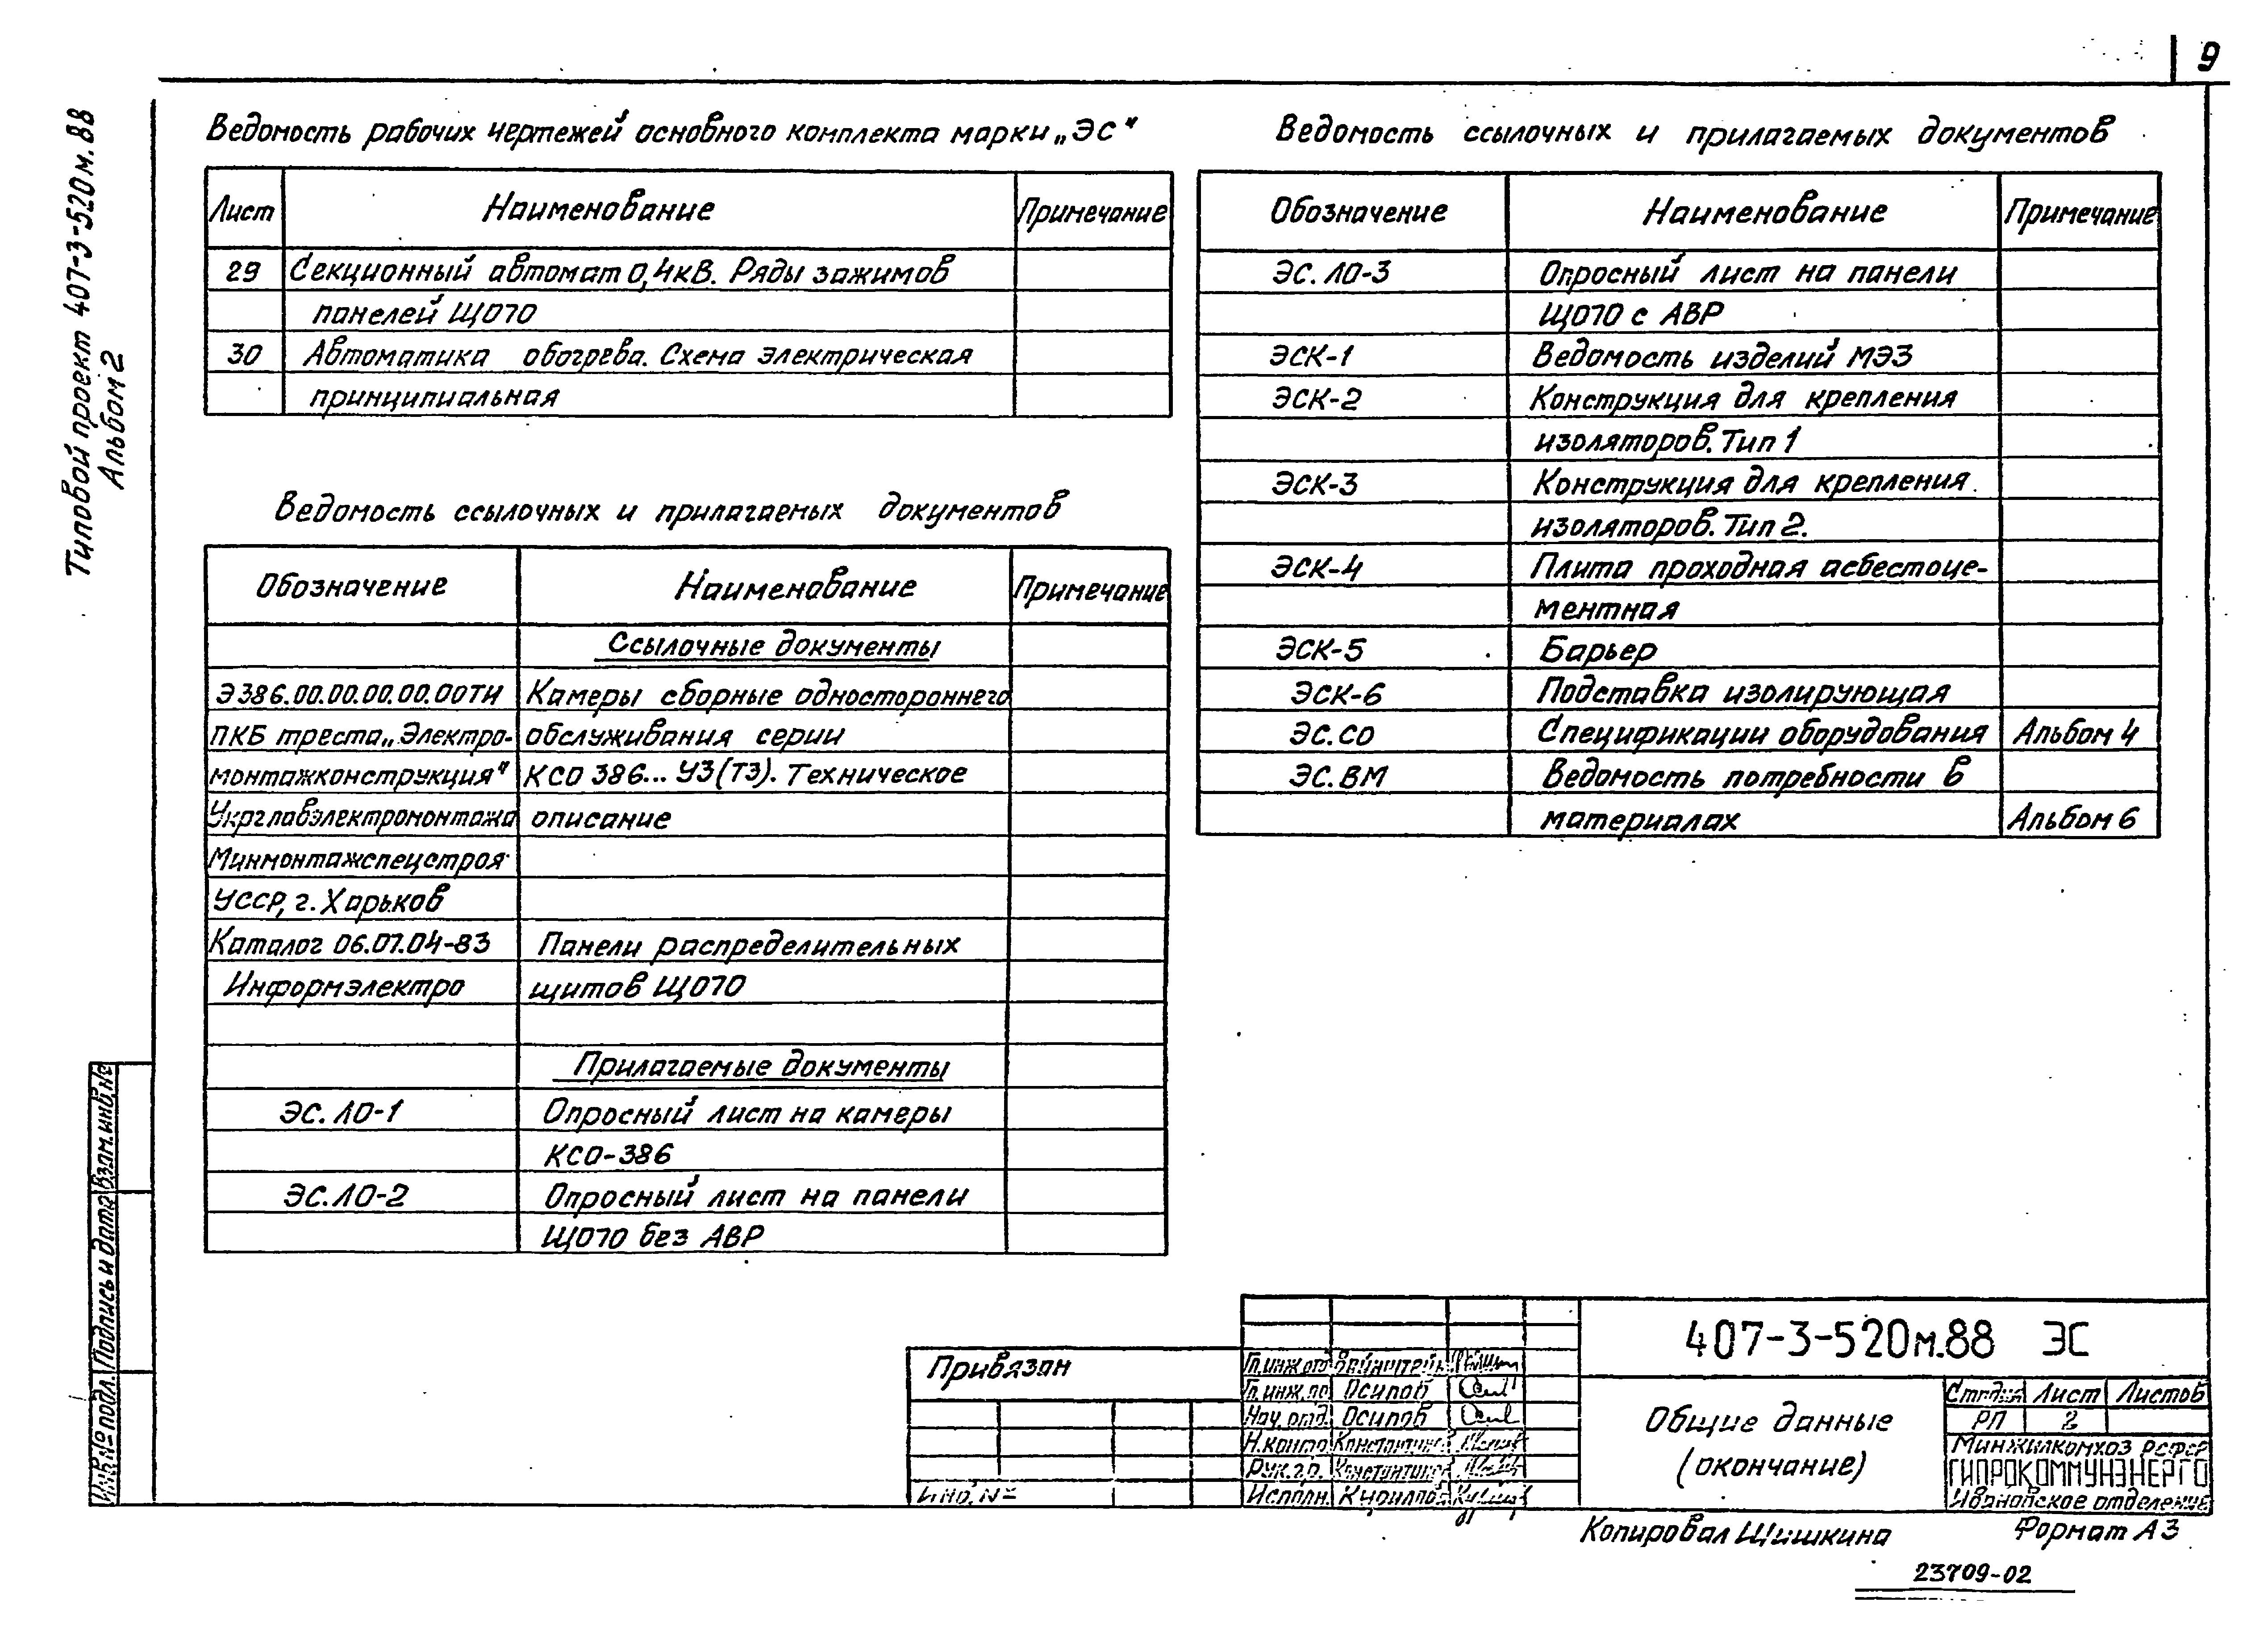 9
Типовой проект 407-3-520м.88
Альбом 2
Ведомость рабочих чертежей основного комплекта марки „ЭС“
Лист Наименование Примечание
29 Секционный автомат 0,4кВ. Ряды зажимов
панелей ЩО70
30 Автоматика обогрева. Схема электрическая
принципиальная
Ведомость ссылочных и прилагаемых документов
Обозначение Наименование Примечание
Ссылочные документы
Э386.00.00.00.00.00ТИ Камеры сборные одностороннего
ПКБ треста „Электро- обслуживания серии
монтажконструкция“ КСО 386... У3(Т3). Техническое
Укрглавэлектромонтажа описание
Минмонтажспецстроя
УССР, г. Харьков
Каталог 06.07.04-83 Панели распределительных
Информэлектро щитов ЩО70
Прилагаемые документы
ЭС.ЛО-1 Опросный лист на камеры
КСО-386
ЭС.ЛО-2 Опросный лист на панели
ЩО70 без АВР
Ведомость ссылочных и прилагаемых документов
Обозначение Наименование Примечание
ЭС.ЛО-3 Опросный лист на панели
ЩО70 с АВР
ЭСК-1 Ведомость изделий МЭЗ
ЭСК-2 Конструкция для крепления
изоляторов. Тип 1
ЭСК-3 Конструкция для крепления
изоляторов. Тип 2.
ЭСК-4 Плита проходная асбестоце-
ментная
ЭСК-5 Барьер
ЭСК-6 Подставка изолирующая
ЭС.СО Спецификации оборудования Альбом 4
ЭС.ВМ Ведомость потребности в
материалах Альбом 6
Инв.№ подл. Подпись и дата Взам.инв.№
Привязан
Инв. №
Гл.инж.
Гл.инж.по Осипов
Нач.отд. Осипов
Н.контр.
Рук.гр.
Исполн.
407-3-520м.88 ЭС
Общие данные
(окончание)
Стадия Лист Листов
РП 2
Минжилкомхоз РСФСР
ГИПРОКОММУНЭНЕРГО
Ивановское отделение
Копировал Шишкина Формат А3
23709-02